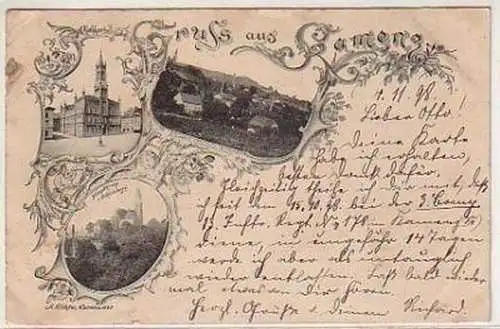 Gruss aus Camenz
1. 11. 98.
Lieber Otto!
Deine Karte
habe ich erhalten,
besten Dank dafür.
Gleichzeitig theile ich dir mit, daß
ich seit dem 15.10.98 bei der 3. Comp
13. Inftr. Regt. No 178 in Kamenz
diene, in ungefähr 14 Tagen
werde ich aber als untauglich
wieder entlassen. Laß bald wieder
mal etwas von Dir hören.
Herzl. Gruß deinem Richard.